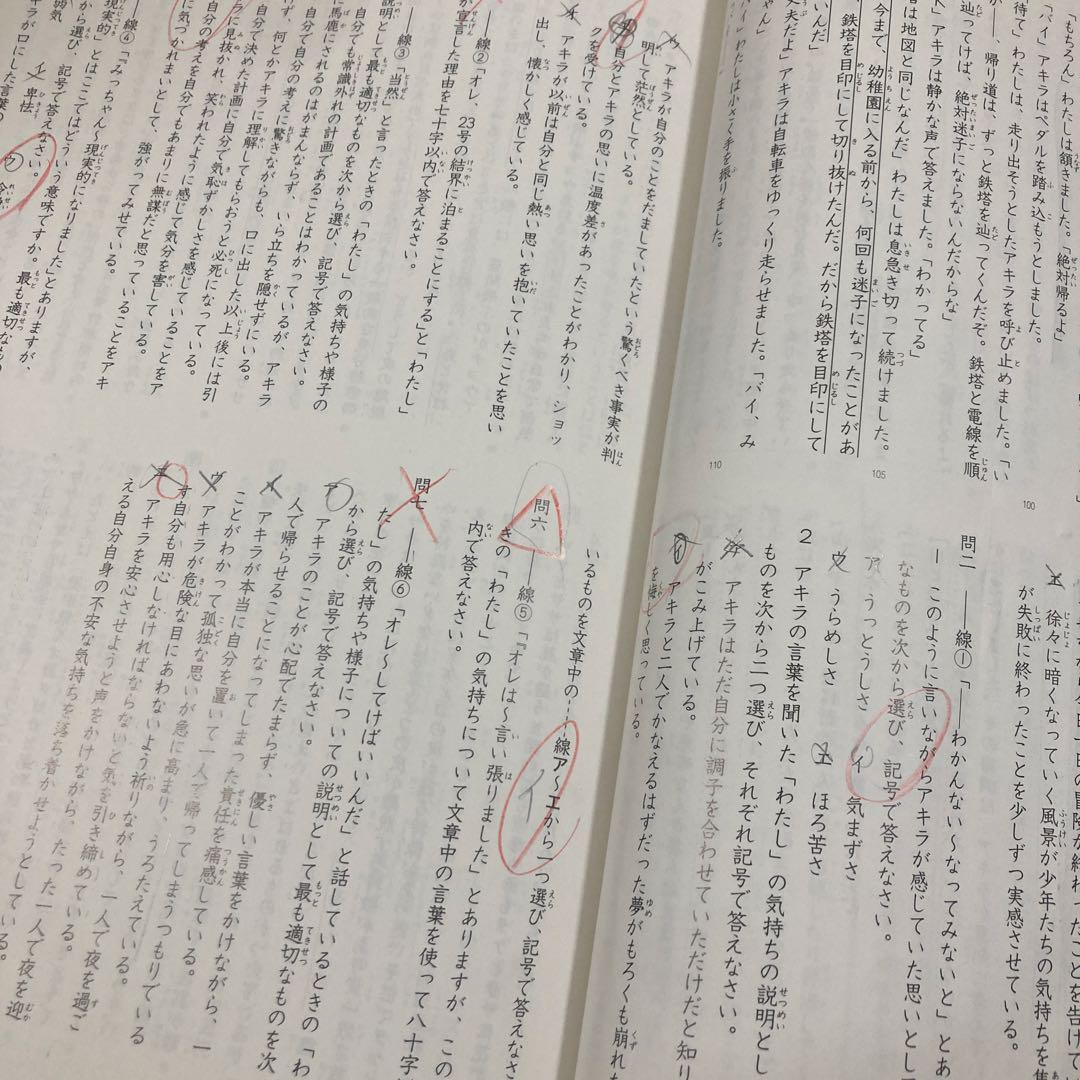 「もちろん」わたしは頷きました。「絶対帰るよ」
「バイ」アキラはペダルを踏み込もうとしました。
待て」わたしは、走り出そうとしたアキラを呼び止めました。「い
、帰り道は、ずっと鉄塔を辿ってくんだぞ。鉄塔と電線を順
辿ってけば、絶対迷子にならないんだからな」
アキラは静かな声で答えました。「わかってる」
塔は地図と同じなんだ」わたしは息急き切って続けました。
今まで、幼稚園に入る前から、何回も迷子になったことがあ
鉄塔を目印にして切り抜けたんだ。だから鉄塔を目印にして
いんだ」
丈夫だよ」アキラは自転車をゆっくり走らせました。「バイ、み
ゃん」
バイ」わたしは小さく手を振りました。
100
105
110
エ 徐々に暗くなっていく風景が少年たちの気持ちを
が失敗に終わったことを少しずつ実感させている。
問二 ――線①「――わかんない～なってみないと」とあ
1 このように言いながらアキラが感じていた思いとし
なものを次から選び、記号で答えなさい。
ア うっとうしさ イ 気まずさ
ウ うらめしさ エ ほろ苦さ
2 アキラの言葉を聞いた「わたし」の気持ちの説明とし
ものを次から二つ選び、それぞれ記号で答えなさい。
ア アキラはただ自分に調子を合わせていただけだと知り
がこみ上げている。
イ アキラと二人でかなえるはずだった夢がもろくも崩れ
を悔しく思っている。
ウ アキラが自分のことをだましていたという驚くべき事実が判
明して茫然としている。
エ 自分とアキラの思いに温度差があったことがわかり、ショッ
クを受けている。
オ アキラが以前は自分と同じ熱い思いを抱いていたことを思い
出し、懐かしく感じている。
――線②「オレ、23号の結界に泊まることにする」と「わたし」
が宣言した理由を七十字以内で答えなさい。
――線③「当然」と言ったときの「わたし」の気持ちや様子の
説明として最も適切なものを次から選び、記号で答えなさい。
自分でも常識外れの計画であることはわかっているが、アキラ
に馬鹿にされるのはがまんならず、いら立ちを隠せずにいる。
自分で自分の考えに驚きながらも、口に出した以上後には引
けず、何とかアキラに理解してもらおうと必死になっている。
自分で決めた計画に自分で気恥ずかしさを感じていることをア
に見抜かれ、笑われたように感じて気分を害している。
自分の考えを自分でもあまりに無謀だと思っていることをアキ
に気づかれまいとして、強がってみせている。
――線④「みっちゃん～現実的になりました」とありますが、
現実的」とはここではどういう意味ですか。最も適切なもの
から選び、記号で答えなさい。
イ 卑怯 ウ
ラが口にした言葉の
いるものを文章中の――線ア～エから一つ選び、記号で答えなさ
イ
問六 ――線⑤「『オレは～言い張りました」とありますが、この
きの「わたし」の気持ちについて文章中の言葉を使って八十字
内で答えなさい。
問七 ――線⑥「オレ～してけばいいんだ」と話しているときの「わ
たし」の気持ちや様子についての説明として最も適切なものを次
から選び、記号で答えなさい。
ア アキラのことが心配でたまらず、優しい言葉をかけながら、一
人で帰らせることになってしまった責任を痛感している。
イ アキラが本当に自分を置いて一人で帰ってしまうつもりでいる
ことがわかって孤独な思いが急に高まり、うろたえている。
ウ アキラが危険な目にあわないよう祈りながら、一人で夜を過ご
す自分も用心しなければならないと気を引き締めている。
エ アキラを安心させようと声をかけながら、たった一人で夜を迎
える自分自身の不安な気持ちを落ち着かせようとしている。